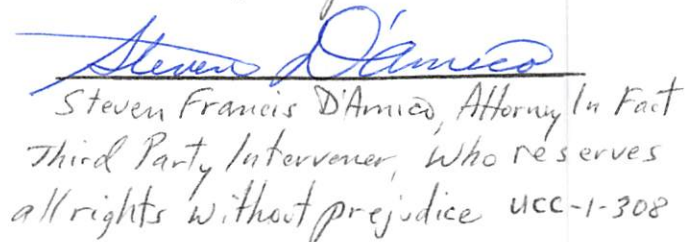 Steven D'Amico
Steven Francis D'Amico, Attorney In Fact
Third Party Intervener, Who reserves
all rights without prejudice UCC-1-308